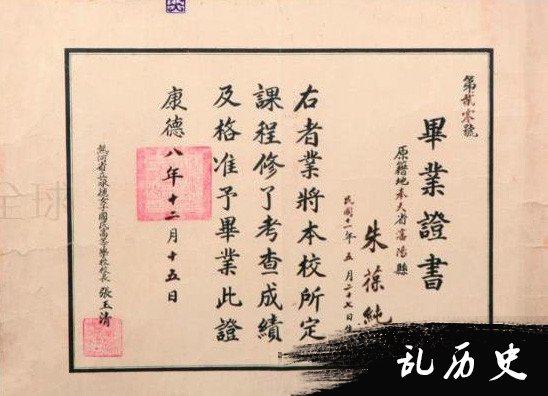 第貳零號
畢業證書
原籍地奉天省瀋陽縣
朱葆純
民國十一年五月二十七日生
右者業將本校所定
課程修了考查成績
及格准予畢業此證
康德八年十二月十五日
熱河省立承德女子國民高等學校校長張玉清
全球
乱历史